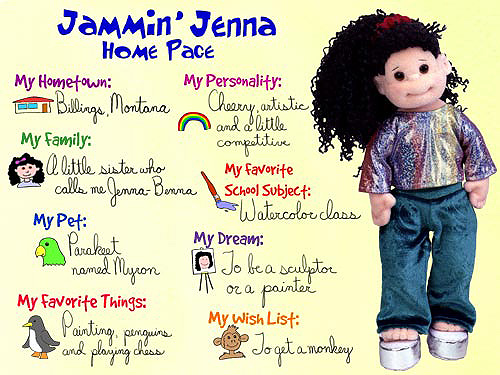 Jammin' Jenna
Home Page
My Hometown:
Billings, Montana
My Family:
A little sister who
calls me Jenna-Benna
My Pet:
Parakeet
named Myron
My Favorite Things:
Painting, penguins
and playing chess
My Personality:
Cheery, artistic
and a little
competitive
My Favorite
School Subject:
Watercolor class
My Dream:
To be a sculptor
or a painter
My Wish List:
To get a monkey